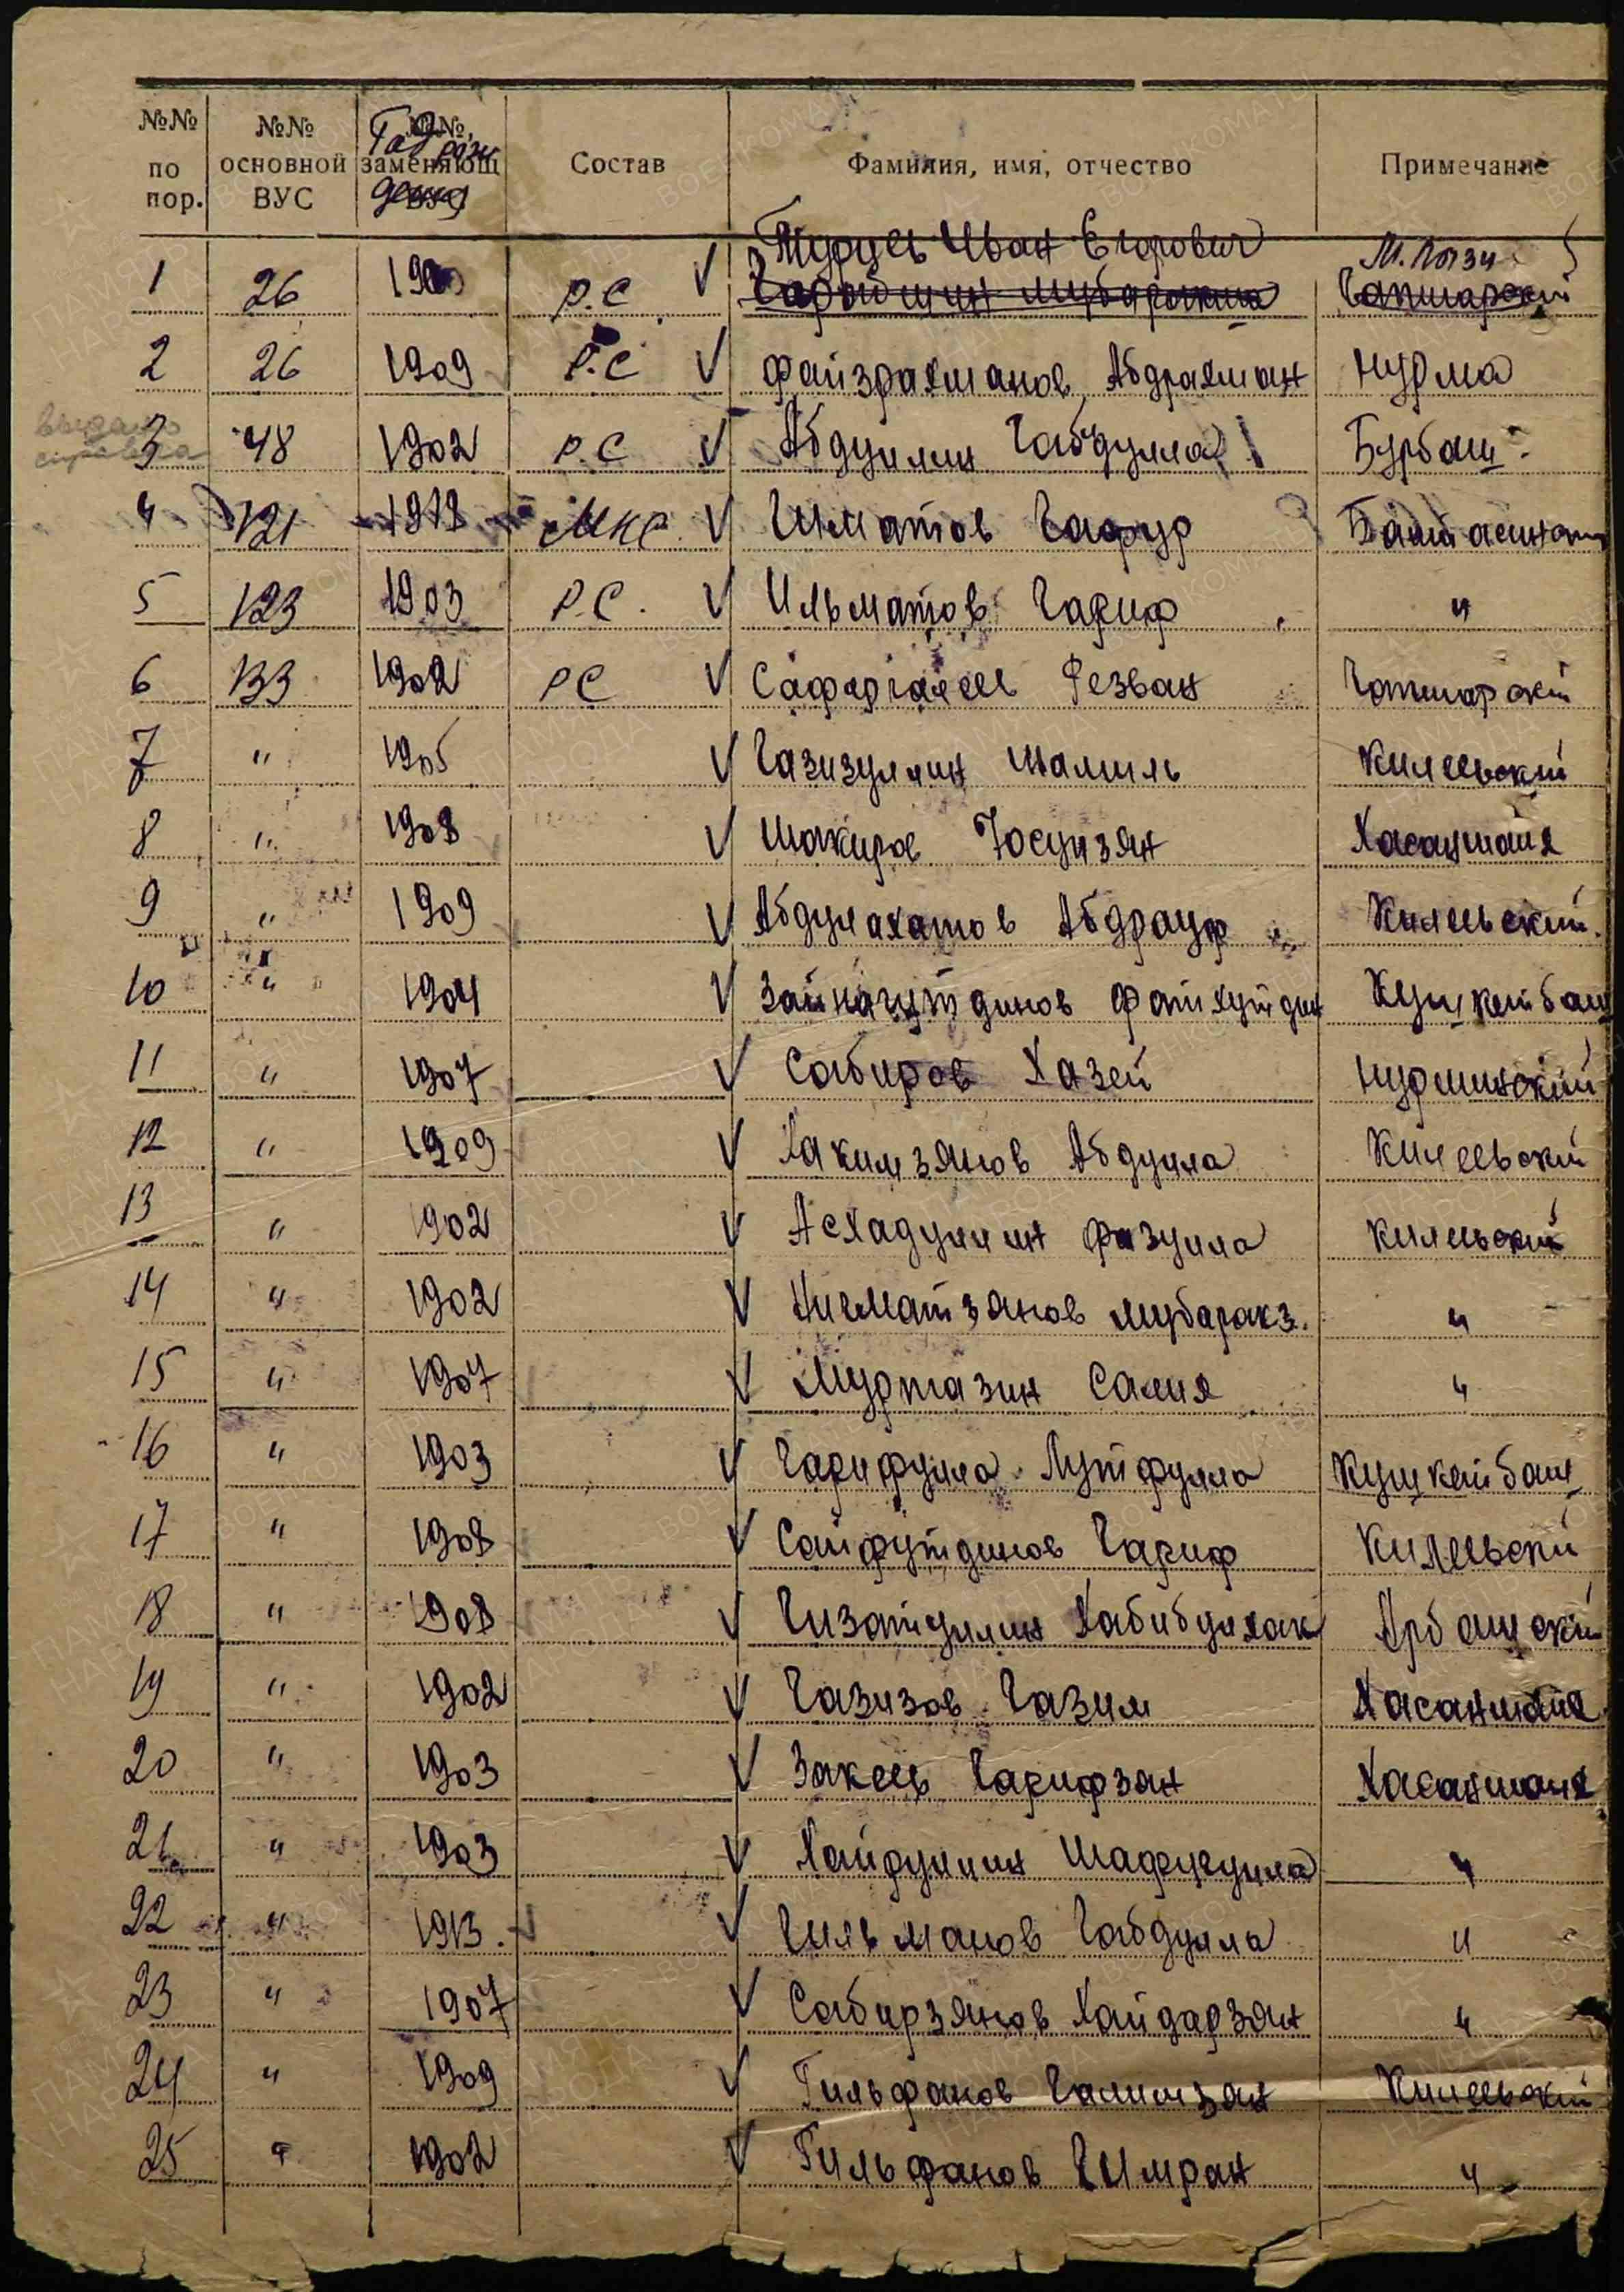 №№ по пор. №№ основной ВУС №№ заменяющ ВУС Год рождения Состав Фамилия, имя, отчество Примечание
Иван Егорович
1 26 Р.С М. Лызи
2 26 1909 Р.С Файзрахманов Абдрахман Нурма
выдано справка
3 48 1902 Р.С Абдуллин Габдулла Бурбаш
4 121 МКС Гафур
5 123 1903 Р.С. Ильматов Гариф "
6 133 1902 РС Резван
7 " 1905 Газизуллин Шамиль Килеевский
8 " 1908 Шакиров Хасаншаих
9 " 1909 Абдулахатов Абдрауф Килеевский.
10 " 1904 Зайнагутдинов Фатхутдин Кушкетбаш
11 " 1907 Сабиров Хазей Нурминский
12 " 1909 Хакимзянов Абдулла Килеевский
13 " 1902 Асхадуллин Фазулла Килеевский
14 " 1902 Нигматзянов Мубаракз. "
15 " 1907 Муртазин Салих "
16 " 1903 Гарифулла Лутфулла Кушкетбаш
17 " 1908 Сайфутдинов Гариф Килеевский
18 " 1908 Гизатуллин Хабибулхак Арбашский
19 " 1902 Газизов Газим Хасаншаих
20 " 1903 Закеев Гарифзян Хасаншаих
21 " 1903 Хайдуллин "
22 " 1913. Гильманов Габдулла "
23 " 1907 Сабирзянов Хайдарзян "
24 " 1909 Гильфанов Галимзян Килеевский
25 " 1902 Гильфанов Гимран "